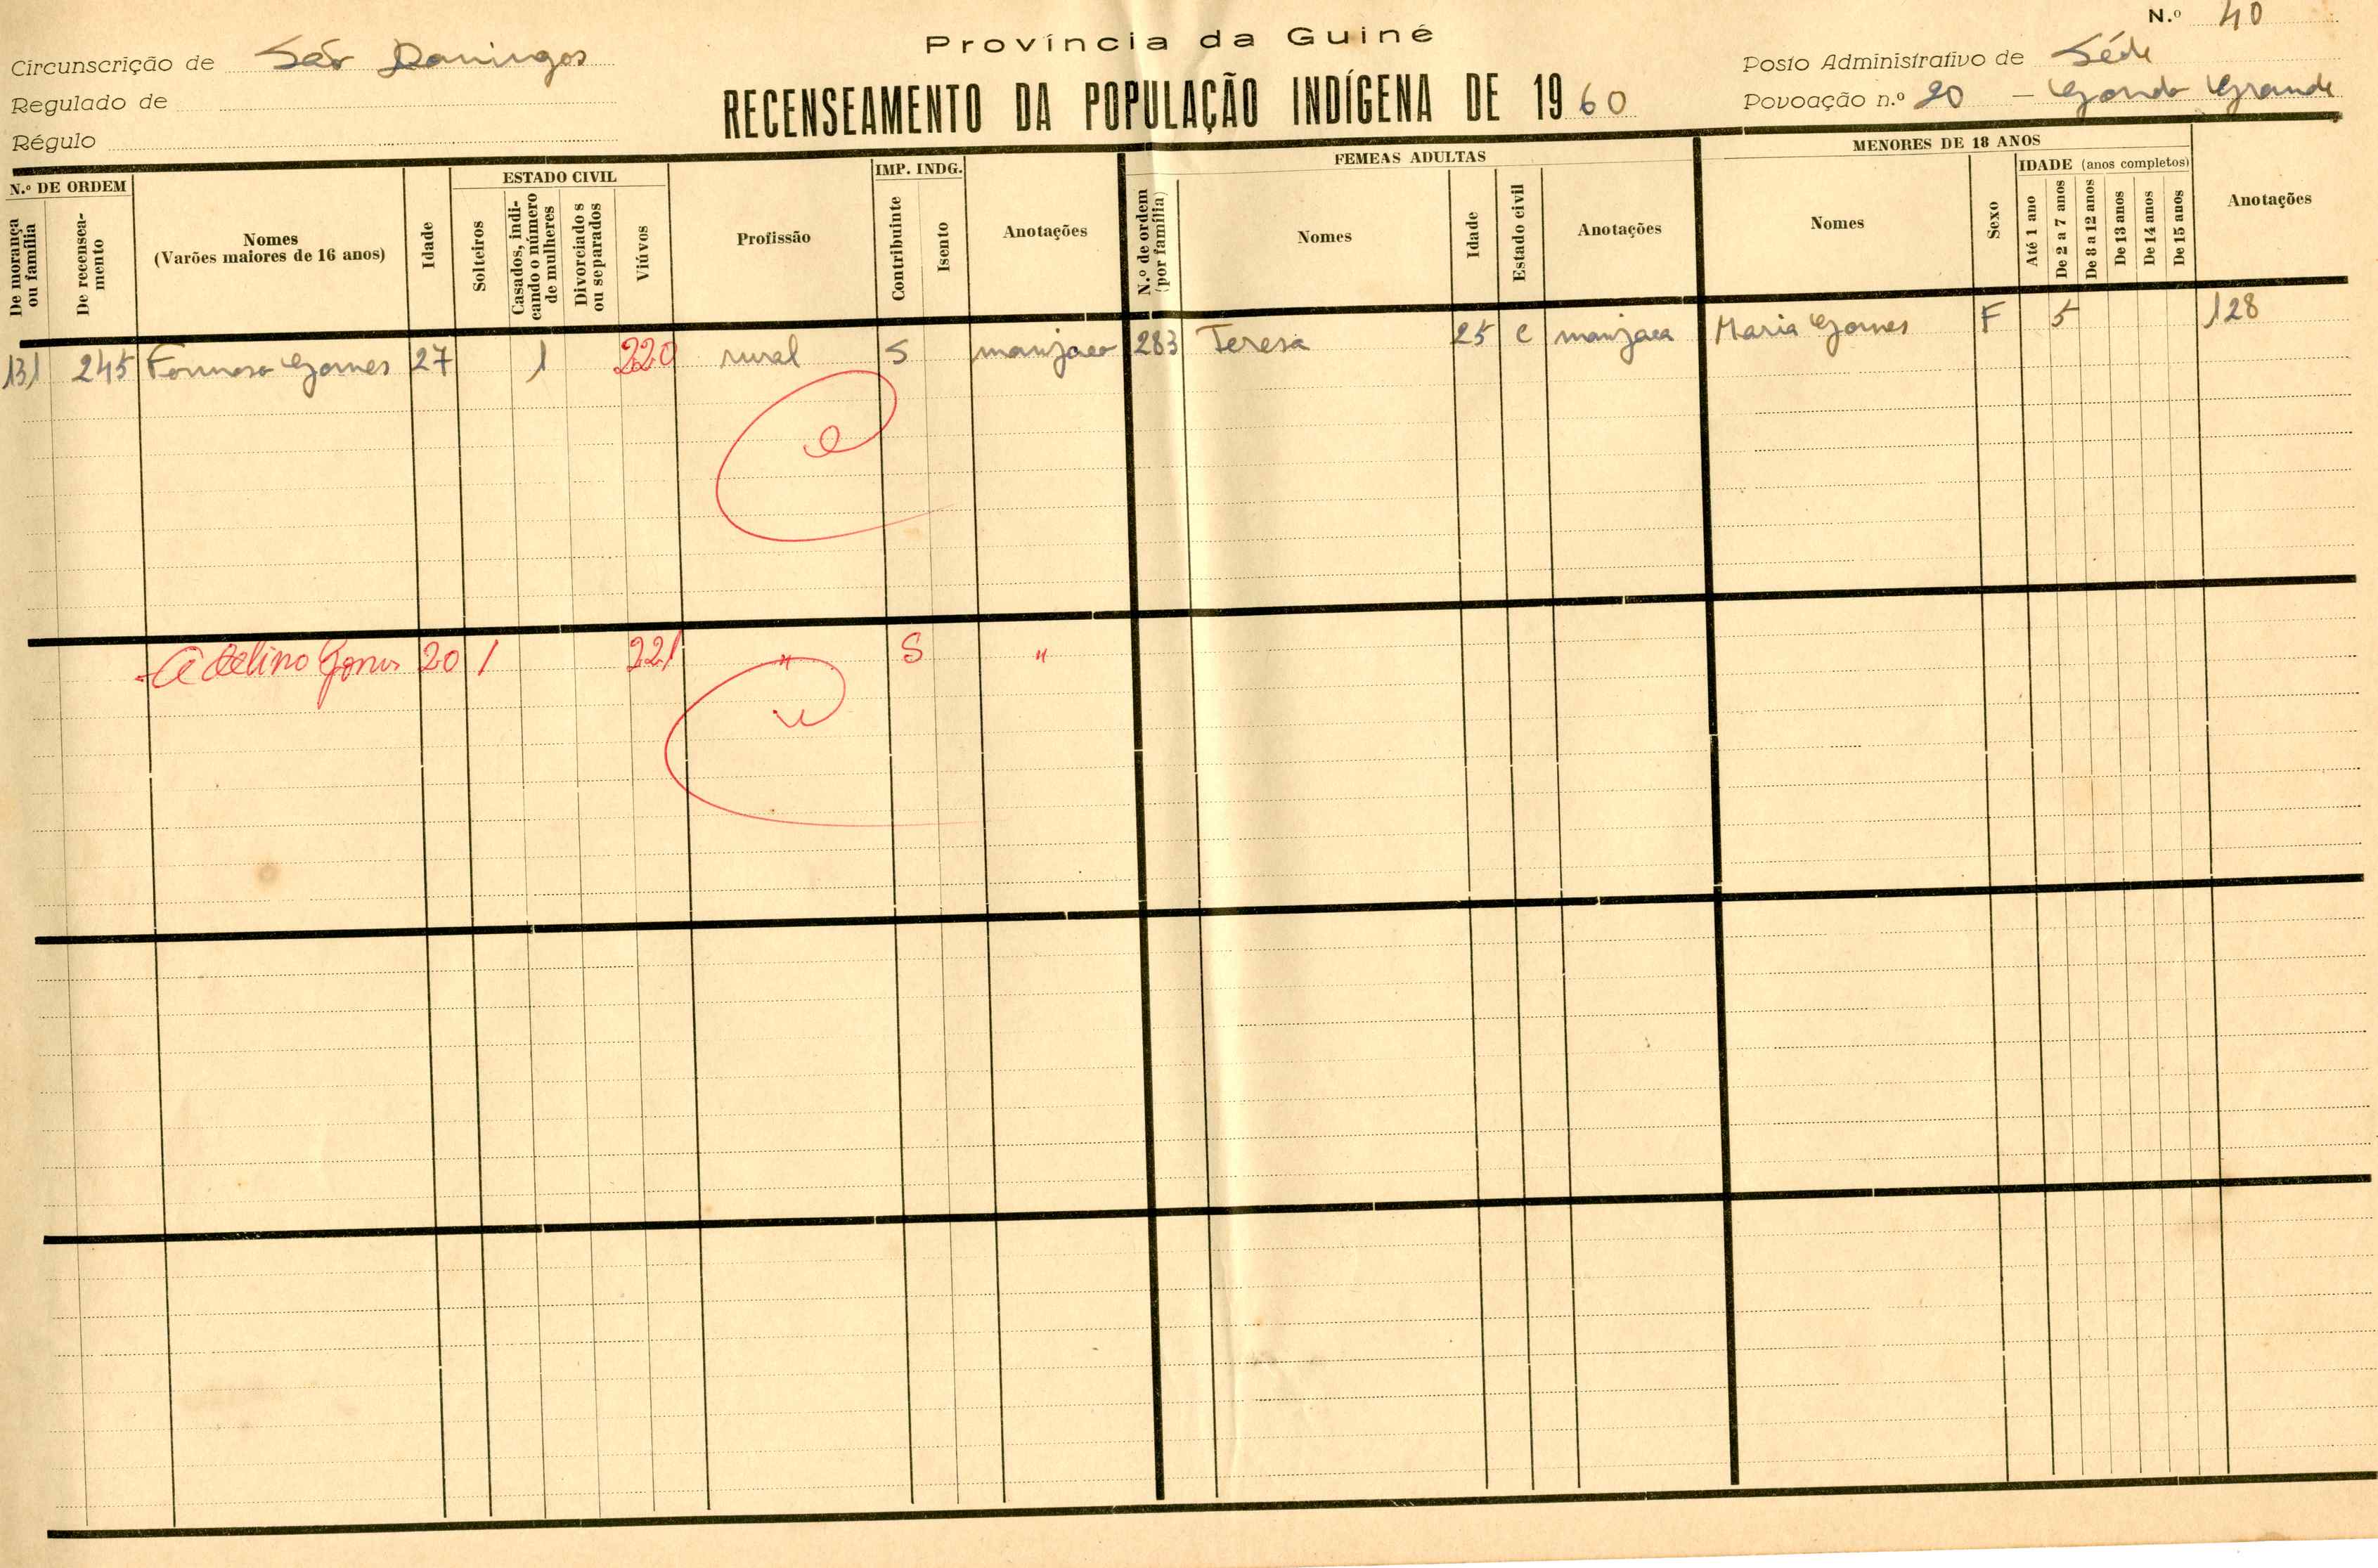 N.º 40
Província da Guiné
Circunscrição de São Domingos
Posto Administrativo de Séde
Regulado de
RECENSEAMENTO DA POPULAÇÃO INDÍGENA DE 1960
Povoação n.º 20 — Grande
Régulo
N.º DE ORDEM
ESTADO CIVIL
IMP. INDG.
FEMEAS ADULTAS
MENORES DE 18 ANOS
IDADE (anos completos)
De morança ou família
De recenseamento
Nomes
(Varões maiores de 16 anos)
Idade
Solteiros
Casados, indicando o número de mulheres
Divorciados ou separados
Viúvos
Profissão
Contribuinte
Isento
Anotações
N.º de ordem (por família)
Nomes
Idade
Estado civil
Anotações
Nomes
Sexo
Até 1 ano
De 2 a 7 anos
De 8 a 12 anos
De 13 anos
De 14 anos
De 15 anos
Anotações
131 245 Formoso Gomes 27 1 220 rural S manjaco 283 Teresa 25 C manjaca Maria Gomes F 5 128
Adelino Gomes 20 1 221 " S "